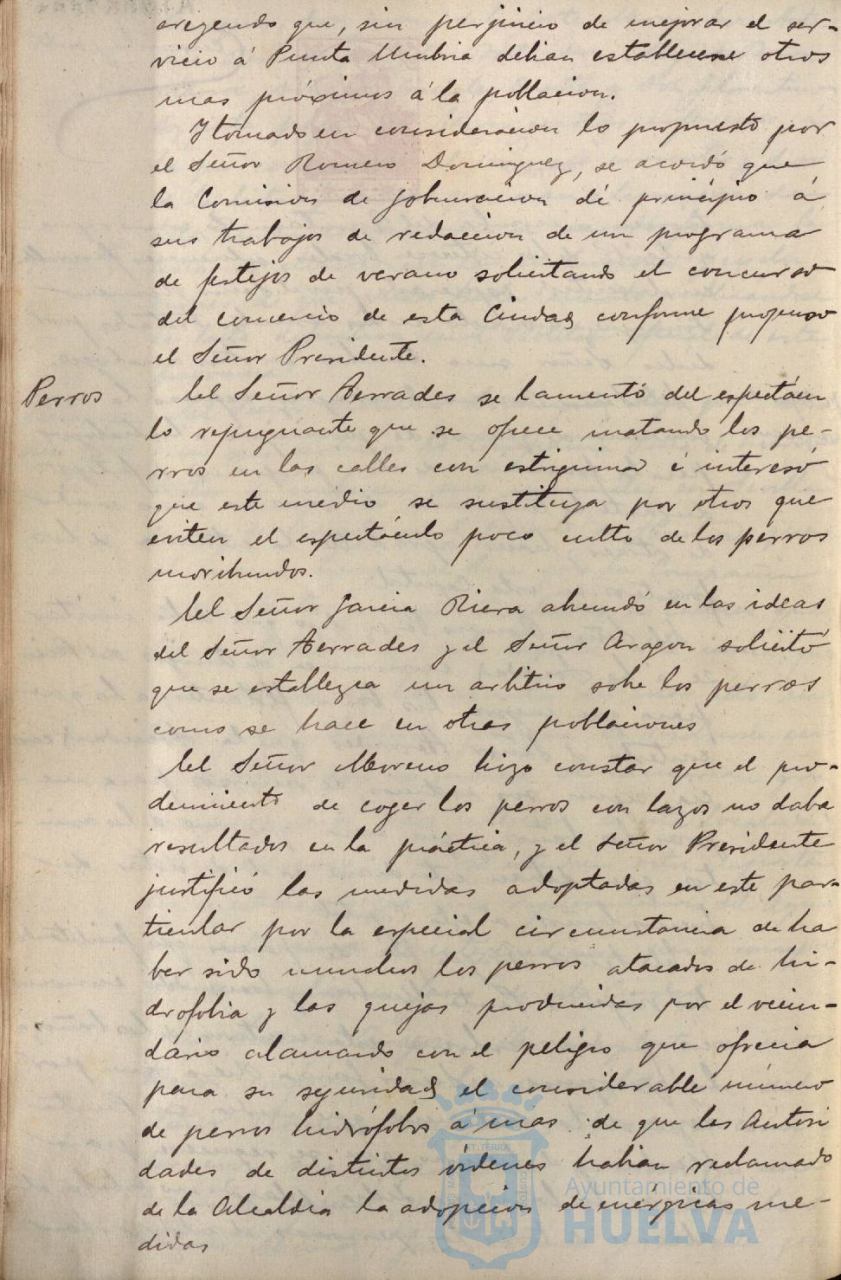 creyendo que, sin perjuicio de mejorar el ser-
vicio á Punta Umbria debian establecerse otros
mas próximos á la poblacion.
Y tomado en consideracion lo propuesto por
el Señor Romero Dominguez, se acordó que
la Comision de Gobernacion dé principio á
sus trabajos de redaccion de un programa
de festejos de verano solicitando el concurso
del comercio de esta Ciudad conforme propuso
el Señor Presidente.
Perros
El Señor Terrades se lamentó del espectácu
lo repugnante que se ofrece matando los pe-
rros en las calles con estrignina é interesó
que este medio se sustituya por otros que
eviten el espectáculo poco culto de los perros
moribundos.
El Señor Garcia Riera abundó en las ideas
del Señor Terrades y el Señor Aragon solicitó
que se establezca un arbitrio sobre los perros
como se hace en otras poblaciones
El Señor Moreno hizo constar que el pro-
demiento de coger los perros con lazos no daba
resultados en la práctica, y el Señor Presidente
justificó las medidas adoptadas en este par-
ticular por la especial circunstancia de ha
ber sido muchos los perros atacados de hi-
drofobia y las quejas producidas por el vecin-
dario alarmado con el peligro que ofrecia
para su seguridad el considerable número
de perros hidrófobos á mas de que las Autori
dades de distintos órdenes habian reclamado
de la Alcaldia la adopcion de enérgicas me-
didas
Ayuntamiento de
HUELVA